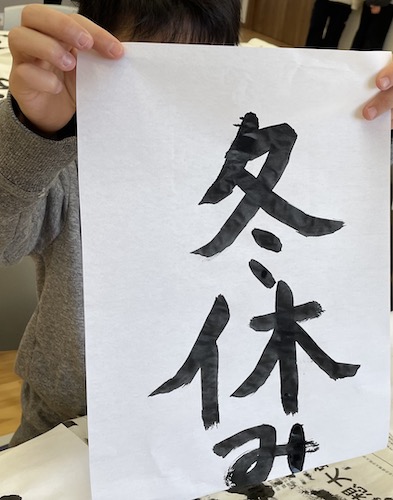 冬休み